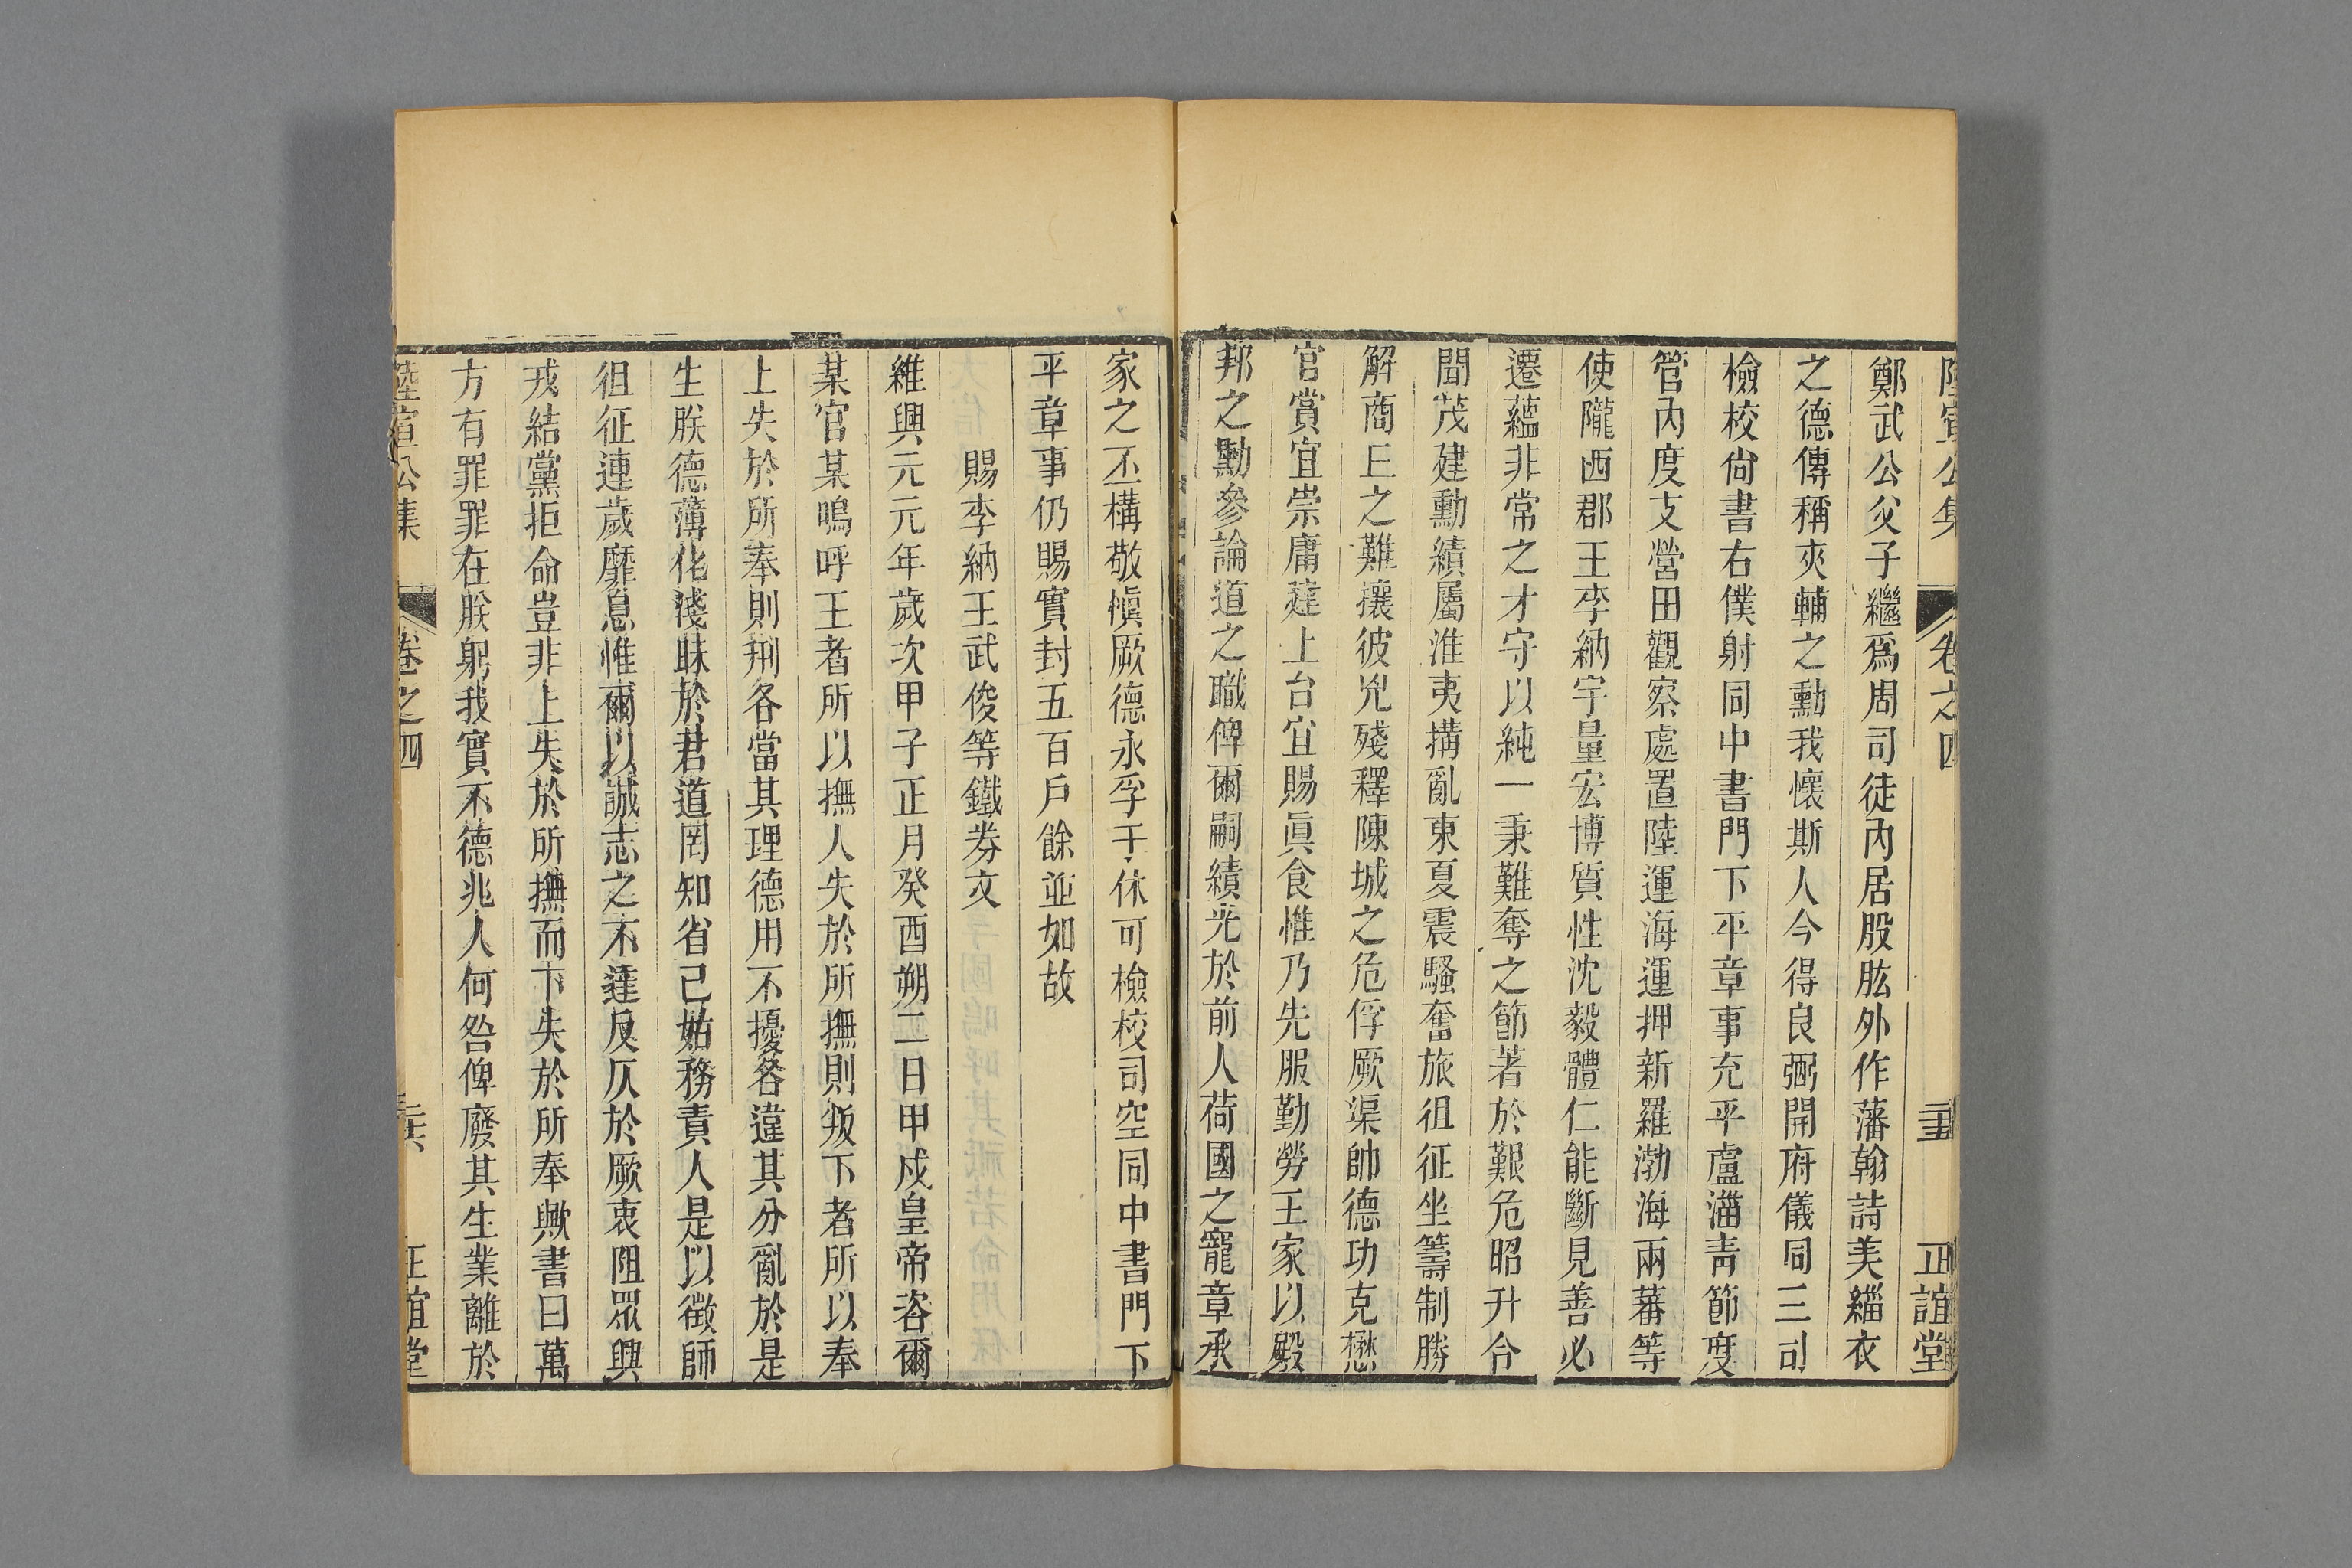 陸宣公集 卷之四 二十五 正誼堂
鄭武公父子繼爲周司徒內居股肱外作藩翰詩美緇衣
之德傳稱夾輔之勳我懷斯人今得良弼開府儀同三司
檢校尙書右僕射同中書門下平章事充平盧淄靑節度
管內度支營田觀察處置陸運海運押新羅渤海兩蕃等
使隴西郡王李納宇量宏博質性沈毅體仁能斷見善必
遷蘊非常之才守以純一秉難奪之節著於艱危昭升令
聞茂建勳績屬淮夷搆亂東夏震騷奮旅徂征坐籌制勝
解商丘之難攘彼兇殘釋陳城之危俘厥渠帥德功克懋
官賞宜崇庸登上台宜賜眞食惟乃先服勤勞王家以殿
邦之勳參論道之職俾爾嗣績光於前人荷國之寵章承
家之丕構敬愼厥德永孚于休可檢校司空同中書門下
平章事仍賜實封五百戶餘並如故
賜李納王武俊等鐵券文
維興元元年歲次甲子正月癸酉朔二日甲戌皇帝咨爾
某官某嗚呼王者所以撫人失於所撫則叛下者所以奉
上失於所奉則刑各當其理德用不擾各違其分亂於是
生朕德薄化淺昧於君道罔知省己姑務責人是以徵師
徂征連歲靡息惟爾以誠志之不達反仄於厥衷阻眾興
戎結黨拒命豈非上失於所撫而下失於所奉歟書曰萬
方有罪罪在朕躬我實不德兆人何咎俾廢其生業離於
陸宣公集 卷之四 二十六 正誼堂